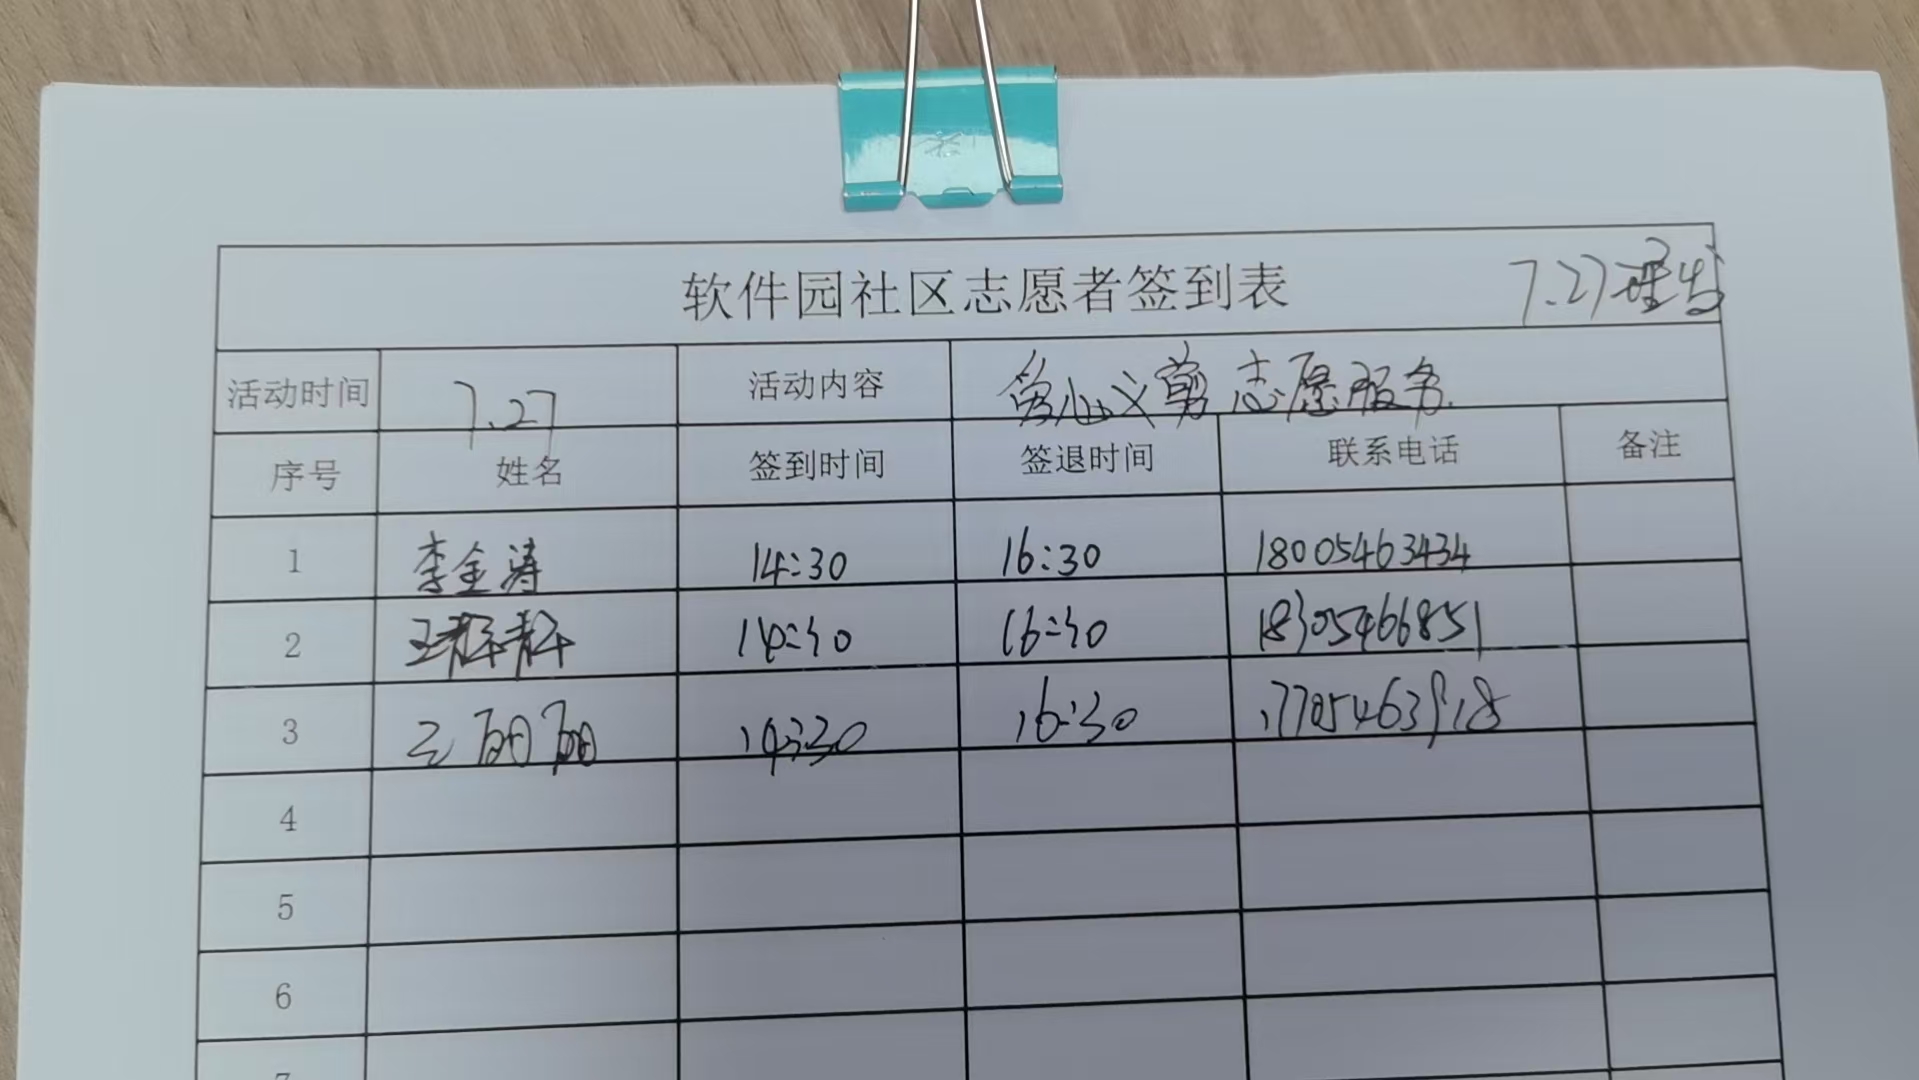 软件园社区志愿者签到表 7.27理发
活动时间 7.27 活动内容 爱心义剪志愿服务
序号 姓名 签到时间 签退时间 联系电话 备注
1 李金涛 14:30 16:30 18005463434
2 王 14:30 16:30 18305466851
3 14:30 16:30
4
5
6
7